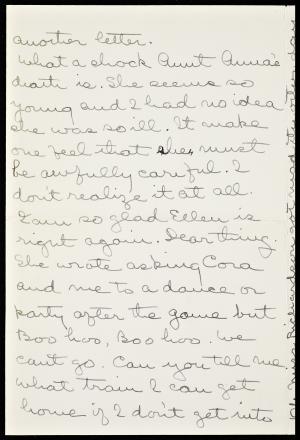 another letter.
What a shock Aunt Annie's
death is. She seems so
young and I had no idea
she was so ill. It make
one feel that she must
be awfully careful. I
don't realize it at all.
I am so glad Ellen is
right again. Dear thing.
She wrote asking Cora
and me to a dance or
party after the game but
Boo hoo, Boo hoo. We
can't go. Can you tell me
what train I can get
home if I don't get into